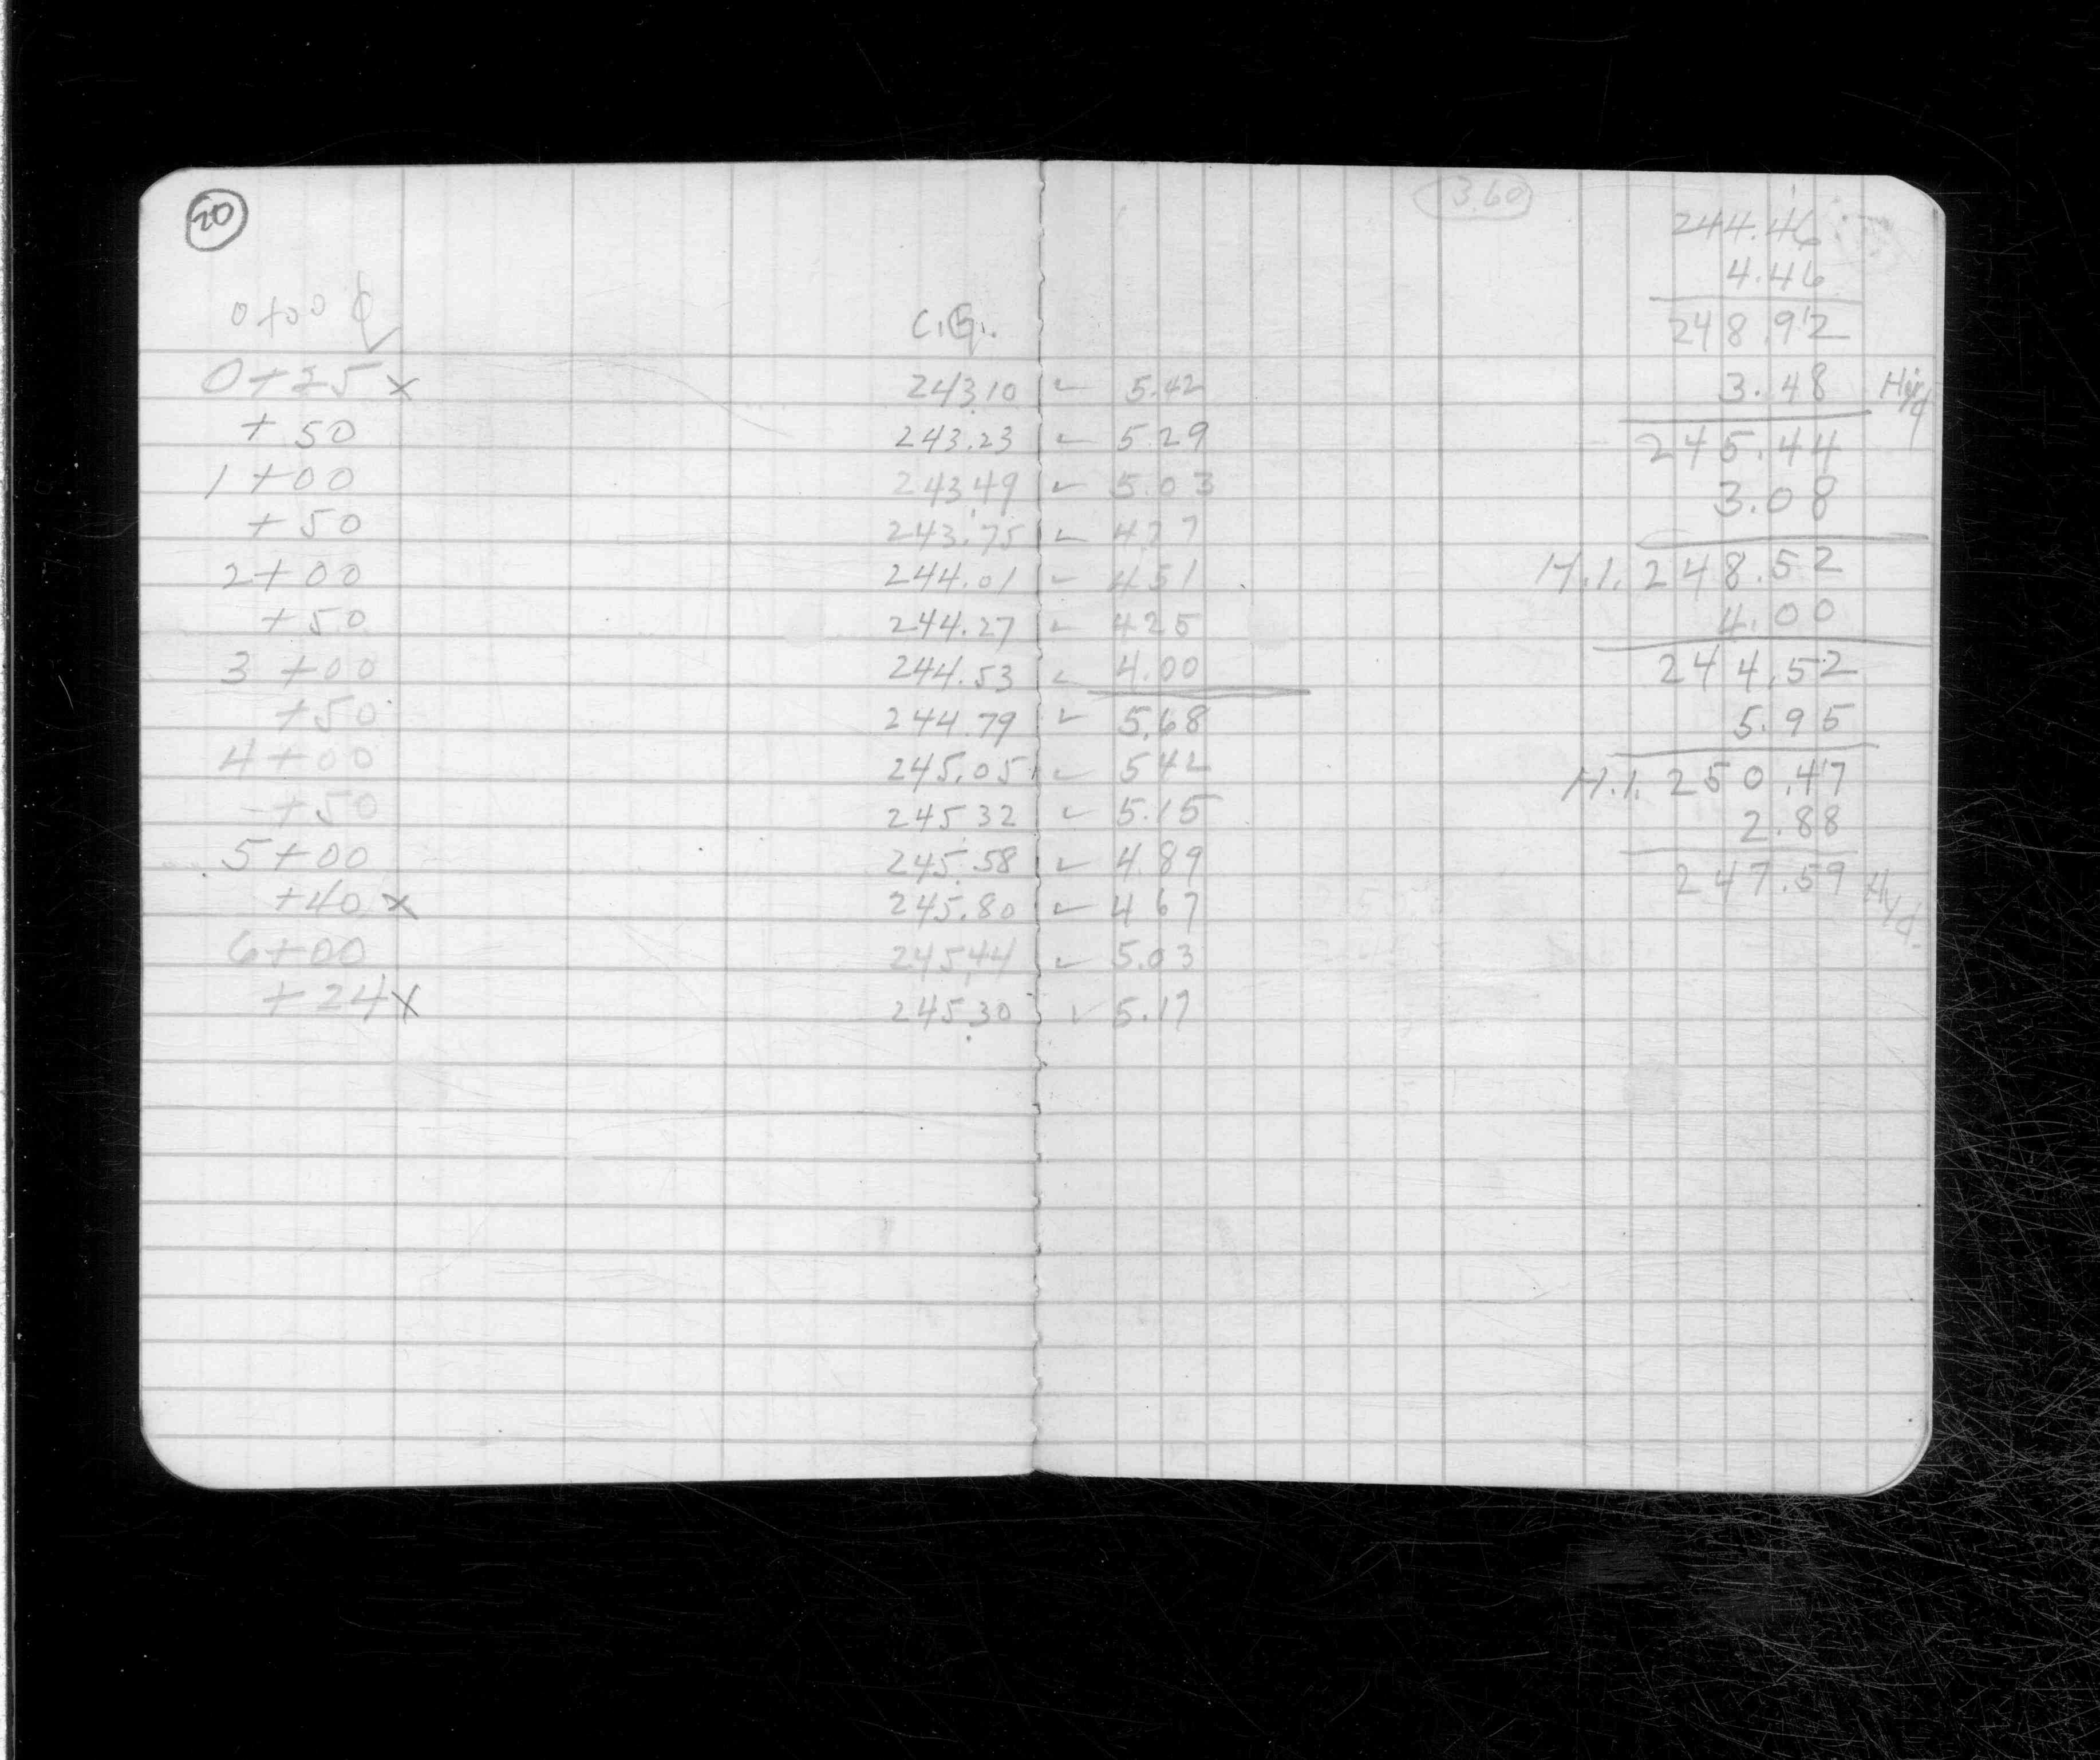 20
0+00 ¢
C.G.
0+25 x 243.10 ✓ 5.42
+50 243.23 ✓ 5.29
1+00 243.49 ✓ 5.03
+50 243.75 ✓ 4.77
2+00 244.01 ✓ 4.51
+50 244.27 ✓ 425
3+00 244.53 ✓ 4.00
+50 244.79 ✓ 5.68
4+00 245.05 ✓ 542
+50 245.32 ✓ 5.15
5+00 245.58 ✓ 4.89
+40 x 245.80 ✓ 467
6+00 245.44 ✓ 5.03
+24 x 245.30 ✓ 5.17
3.60
244.46
4.46
248.92
3.48 Hyd
245.44
3.08
H.I. 248.52
4.00
244.52
5.95
H.I. 250.47
2.88
247.59 Hyd.